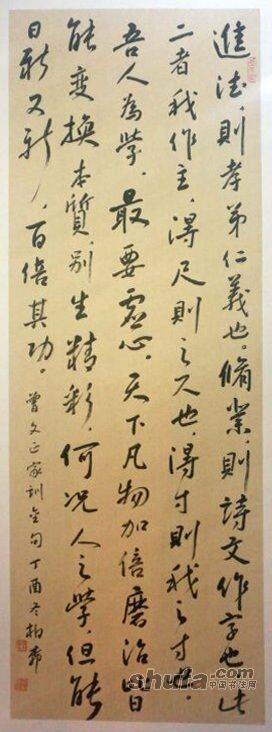 進德,則孝弟仁義也。脩業,則詩文作字也。此
二者我作主,得尺則之尺也,得寸則我之寸也。
吾人為學,最要虛心。天下凡物加倍磨治皆
能变換本質,別生精彩,何況人之學,但能
日新又新,百倍其功。
曾文正家訓金句 丁酉冬柏
shufa.com
中国书法网